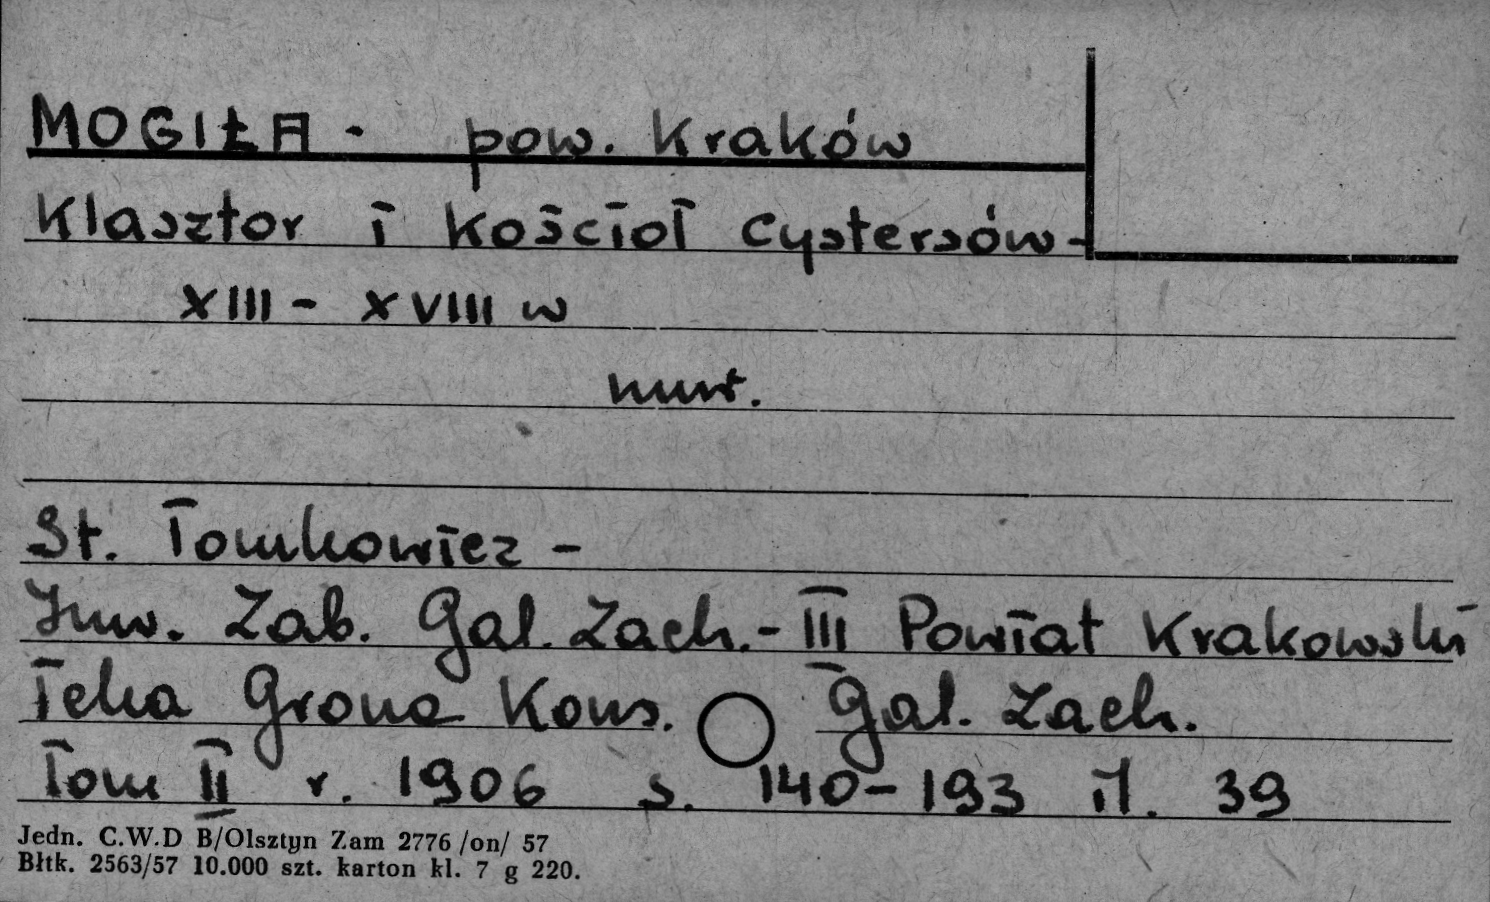 MOGIŁA - pow. Kraków
Klasztor i Kościół Cystersów -
XIII - XVIII w
mur.
St. Tomkowicz -
Inw. Zab. Gal. Zach. - III Powiat Krakowski
Teka Grona Kons. Gal. Zach.
Tom II r. 1906 s. 140-193 il. 39
Jedn. C.W.D B/Olsztyn Zam 2776 /on/ 57
Błtk. 2563/57 10.000 szt. karton kl. 7 g 220.